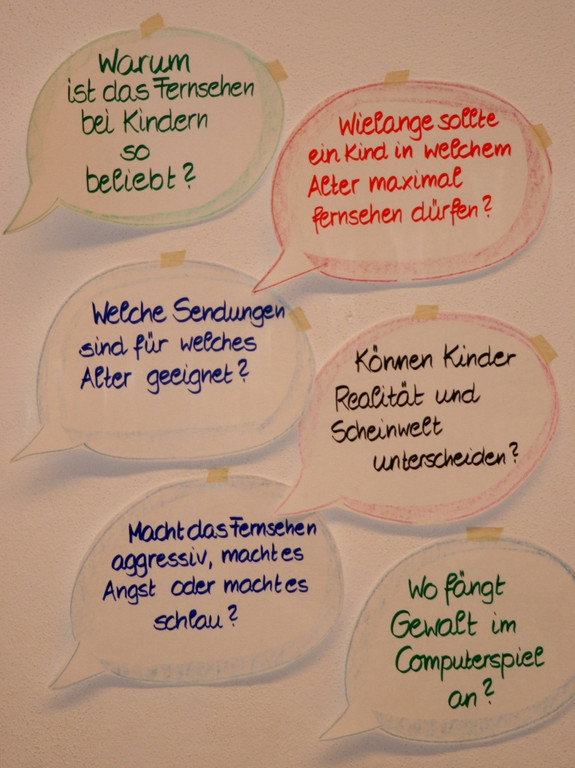 Warum
ist das Fernsehen
bei Kindern
so
beliebt?
Wielange sollte
ein Kind in welchem
Alter maximal
fernsehen dürfen?
Welche Sendungen
sind für welches
Alter geeignet?
Können Kinder
Realität und
Scheinwelt
unterscheiden?
Macht das Fernsehen
aggressiv, macht es
Angst oder macht es
schlau?
Wo fängt
Gewalt im
Computerspiel
an?